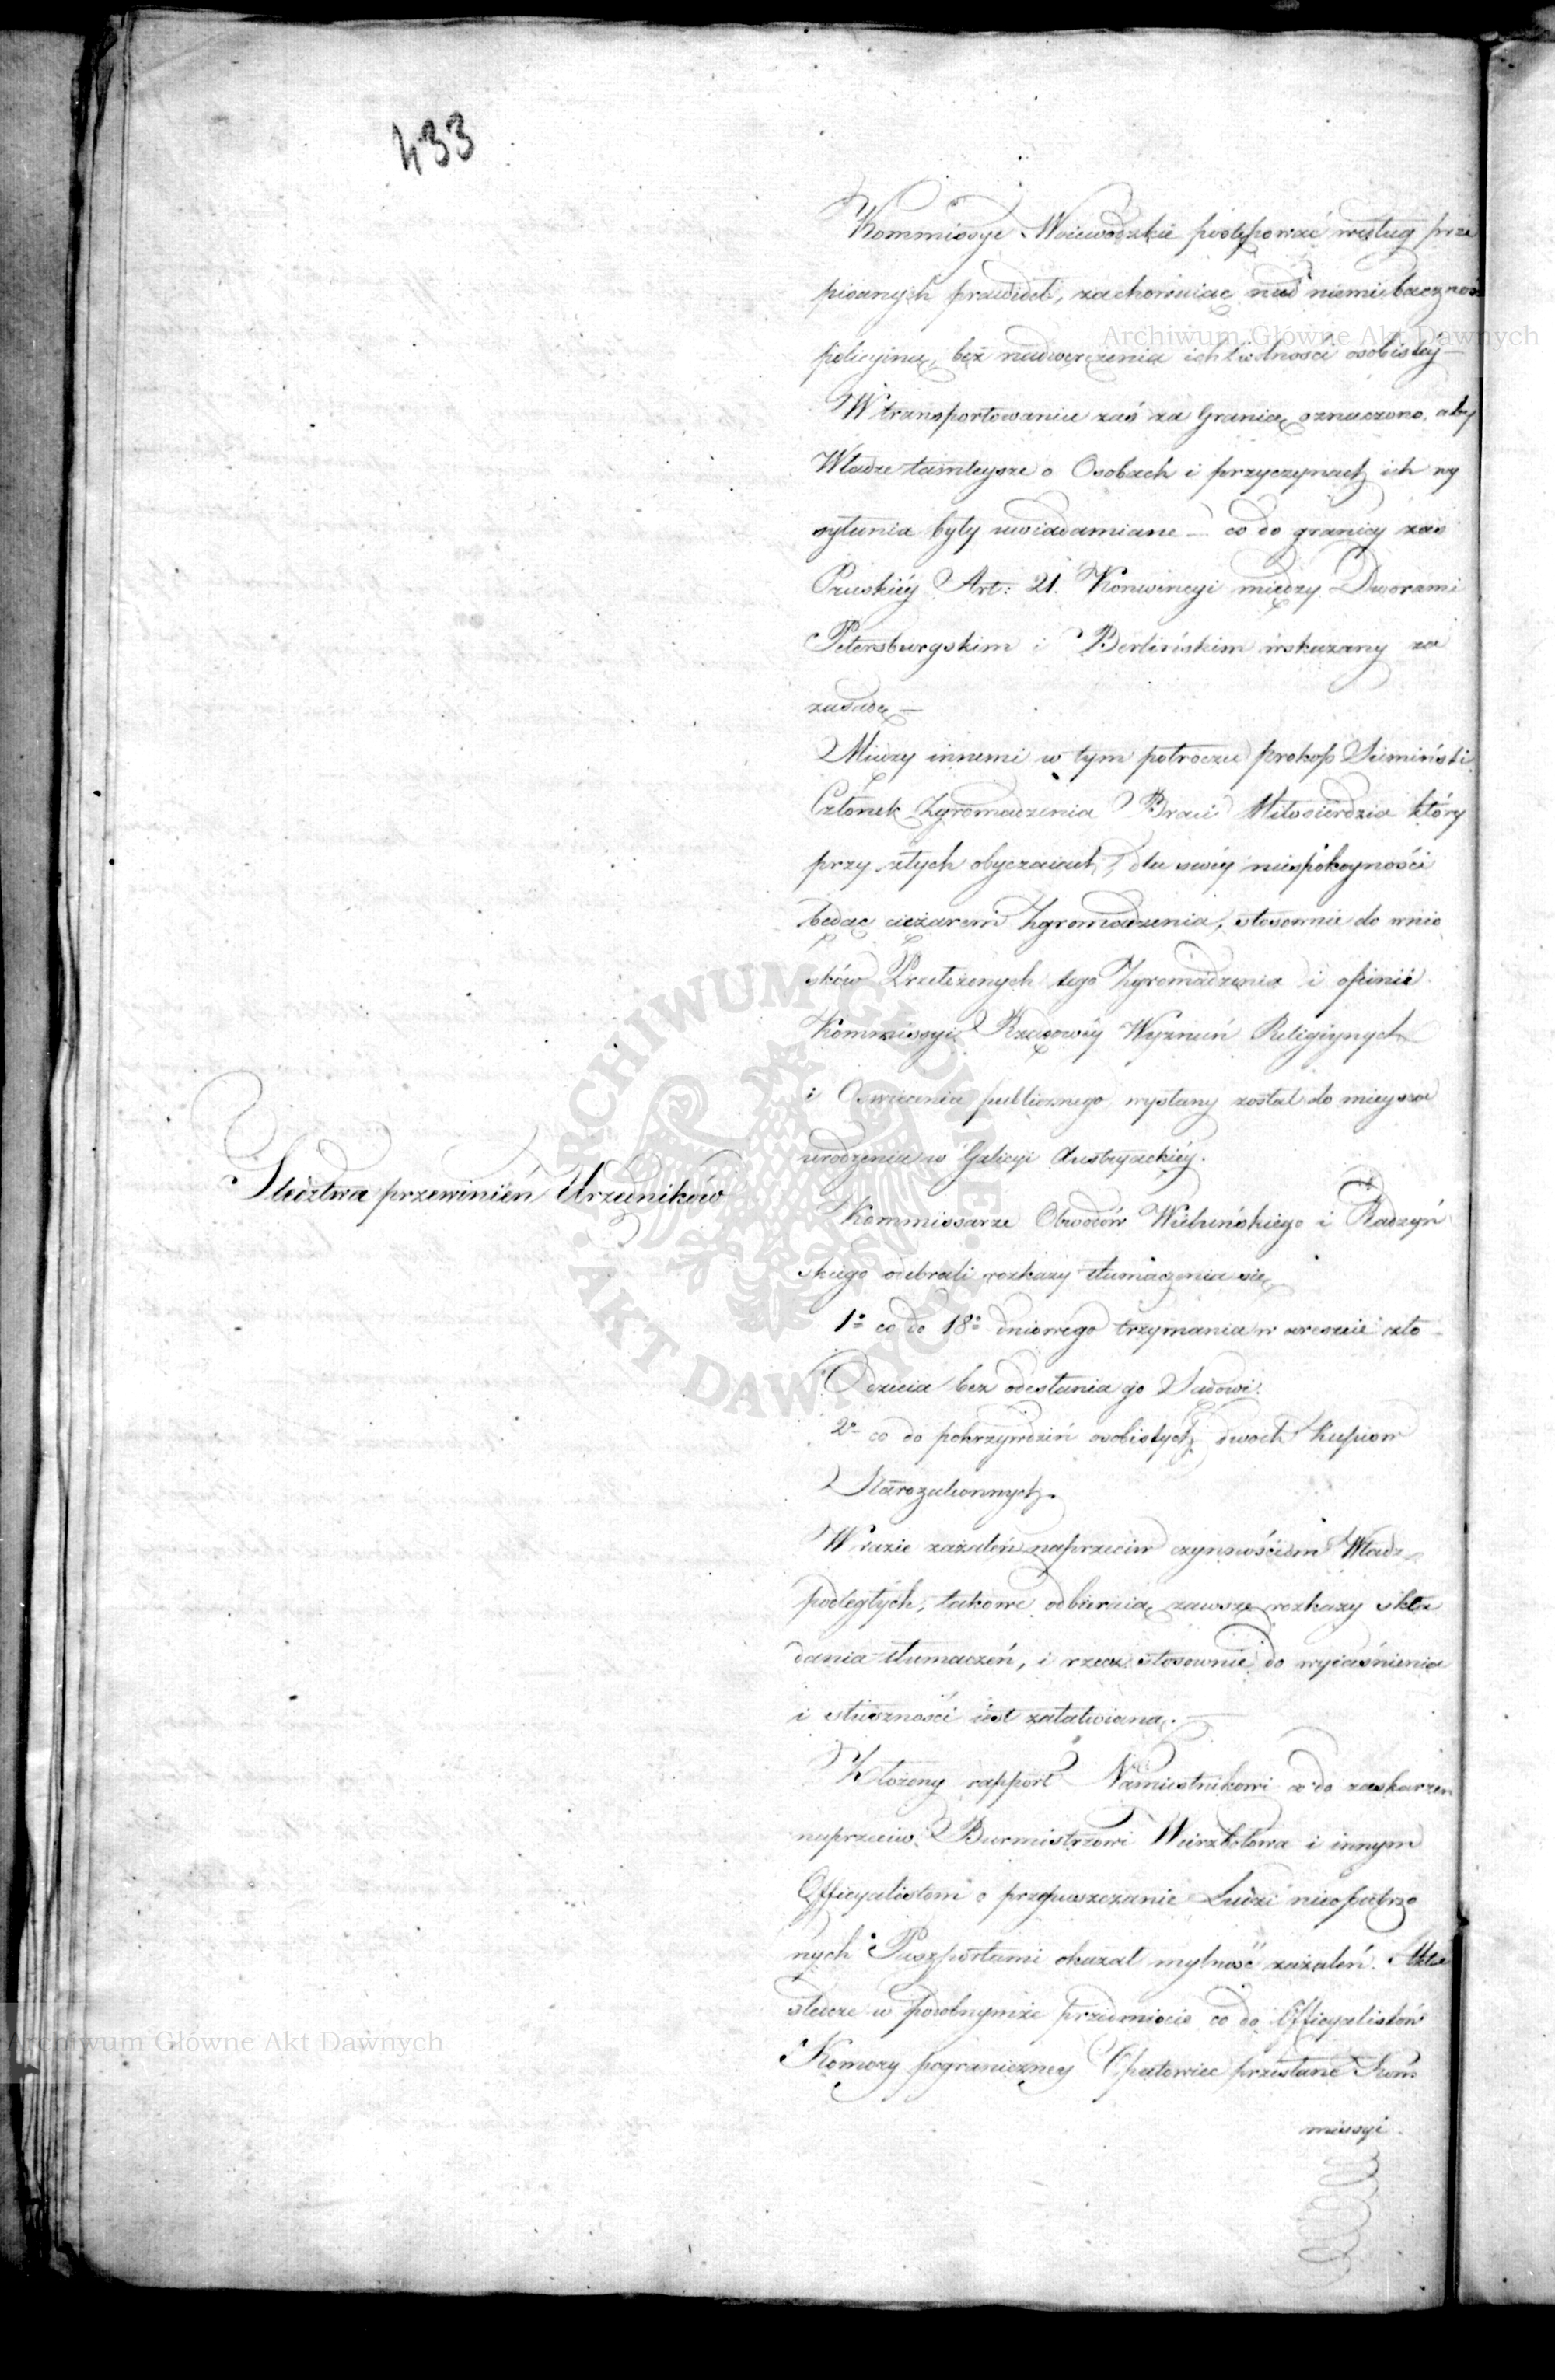 433
Kommissye Woiewodzkie postępować według prze
pisanych prawideł, zachowuiąc nad niemi baczność
policyiną, bez nadweręzenia ich wolnosci osobistéy —
W transportowaniu zaś za Granicę oznaczono, aby
Władze tamteysze o Osobach i przyczynach ich wy
syłania były uwiadamiane — co do granicy zas
Pruskiéy Art: 21. Konwencyi między Dworami
Petersburgskim i Berlińskim wskazany za
zasadę —
Między innemi w tym połroczu prokop Siemiński
Członek Zgromadzenia Braci Miłosierdzia który
przy złych obyczaiach, dla swéy niespokoyności
będąc cięzarem Zgromadzenia, stosownie do wnio
sków Przełożonych tego Zgromadzenia i opinii
Kommissyi Rządowéy Wyznań Religiynych
i Oswiecenia publicznego wysłany został do mieysca
urodzenia w Galicyi Austryackiéy.
Sledztwa przewinień Urzędników
Kommissarze Obwodów Wieluńskiego i Radzyń
skiego odebrali rozkazy tłumaczenia się
1º co do 18º dniowego trzymania w areszcie zło-
dzieia bez odesłania go Sądowi.
2º co do pokrzywdzień osobistych dwoch Kupcow
Starozakonnych.
W razie zażaleń naprzeciw czynnościom Władz
podległych, takowe odbieraią zawsze rozkazy skła
dania tłumaczeń, i rzecz stosownie do wyiaśnienia
i słuszności iest załatwianą. —
Złożony rapport Namiestnikowi co do zaskarzen
naprzeciw Burmistrzowi Wierzbołowa i innym
Officyalistom o przepuszczanie Ludzi nieopatrzo
nych Paszportami okazał mylność zażaleń. Akta
sledcze w podobnymże przedmiocie co do Officyalistów
Komory pograniczney Opatowiec przesłane Kom
missyi
Archiwum Główne Akt Dawnych
Archiwum Główne Akt Dawnych
ARCHIWUM GŁÓWNE AKT DAWNYCH · WARSZAWIE